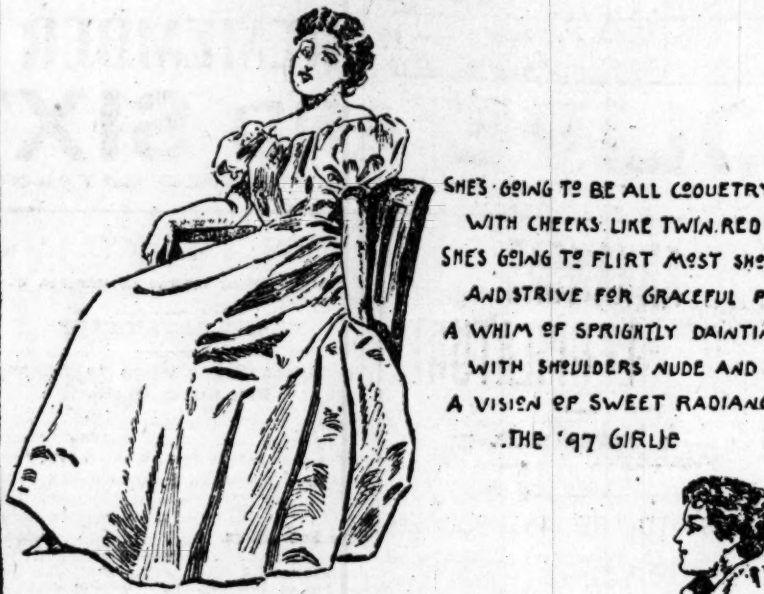 SHE'S GOING TO BE ALL COQUETRY
WITH CHEEKS LIKE TWIN RED
SHE'S GOING TO FLIRT MOST
AND STRIVE FOR GRACEFUL
A WHIM OF SPRIGHTLY
WITH SHOULDERS NUDE AND
A VISION OF SWEET
THE '97 GIRLIE